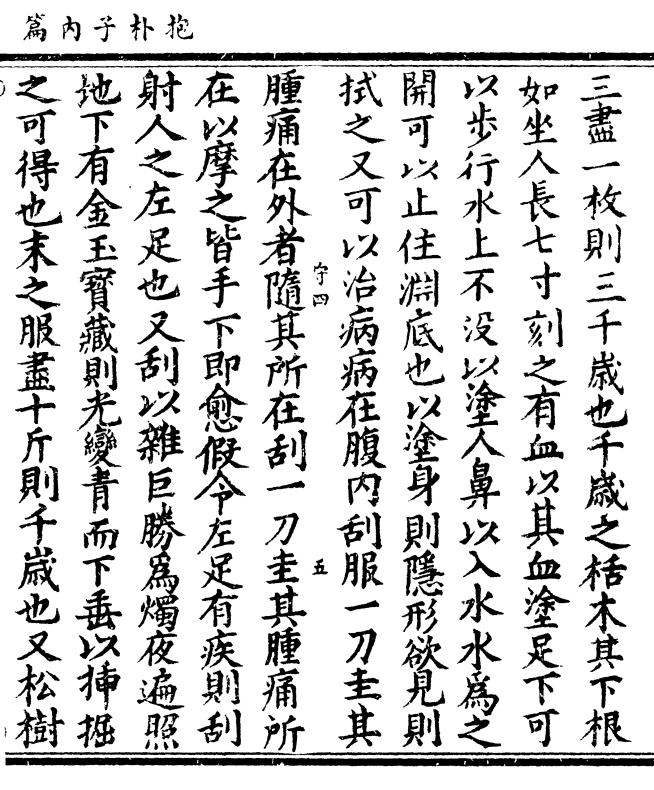 抱朴子內篇
三盡一枚則三千歲也千歲之栝木其下根
如坐人長七寸刻之有血以其血塗足下可
以步行水上不没以塗人鼻以入水水為之
開可以止住淵底也以塗身則隱形欲見則
拭之又可以治病病在腹內刮服一刀圭其
腫痛在外者隨其所在刮一刀圭其腫痛所
守四
五
在以摩之皆手下即愈假令左足有疾則刮
射人之左足也又刮以雜巨勝為燭夜遍照
地下有金玉寳藏則光變青而下垂以揷掘
之可得也末之服盡十斤則千歲也又松樹